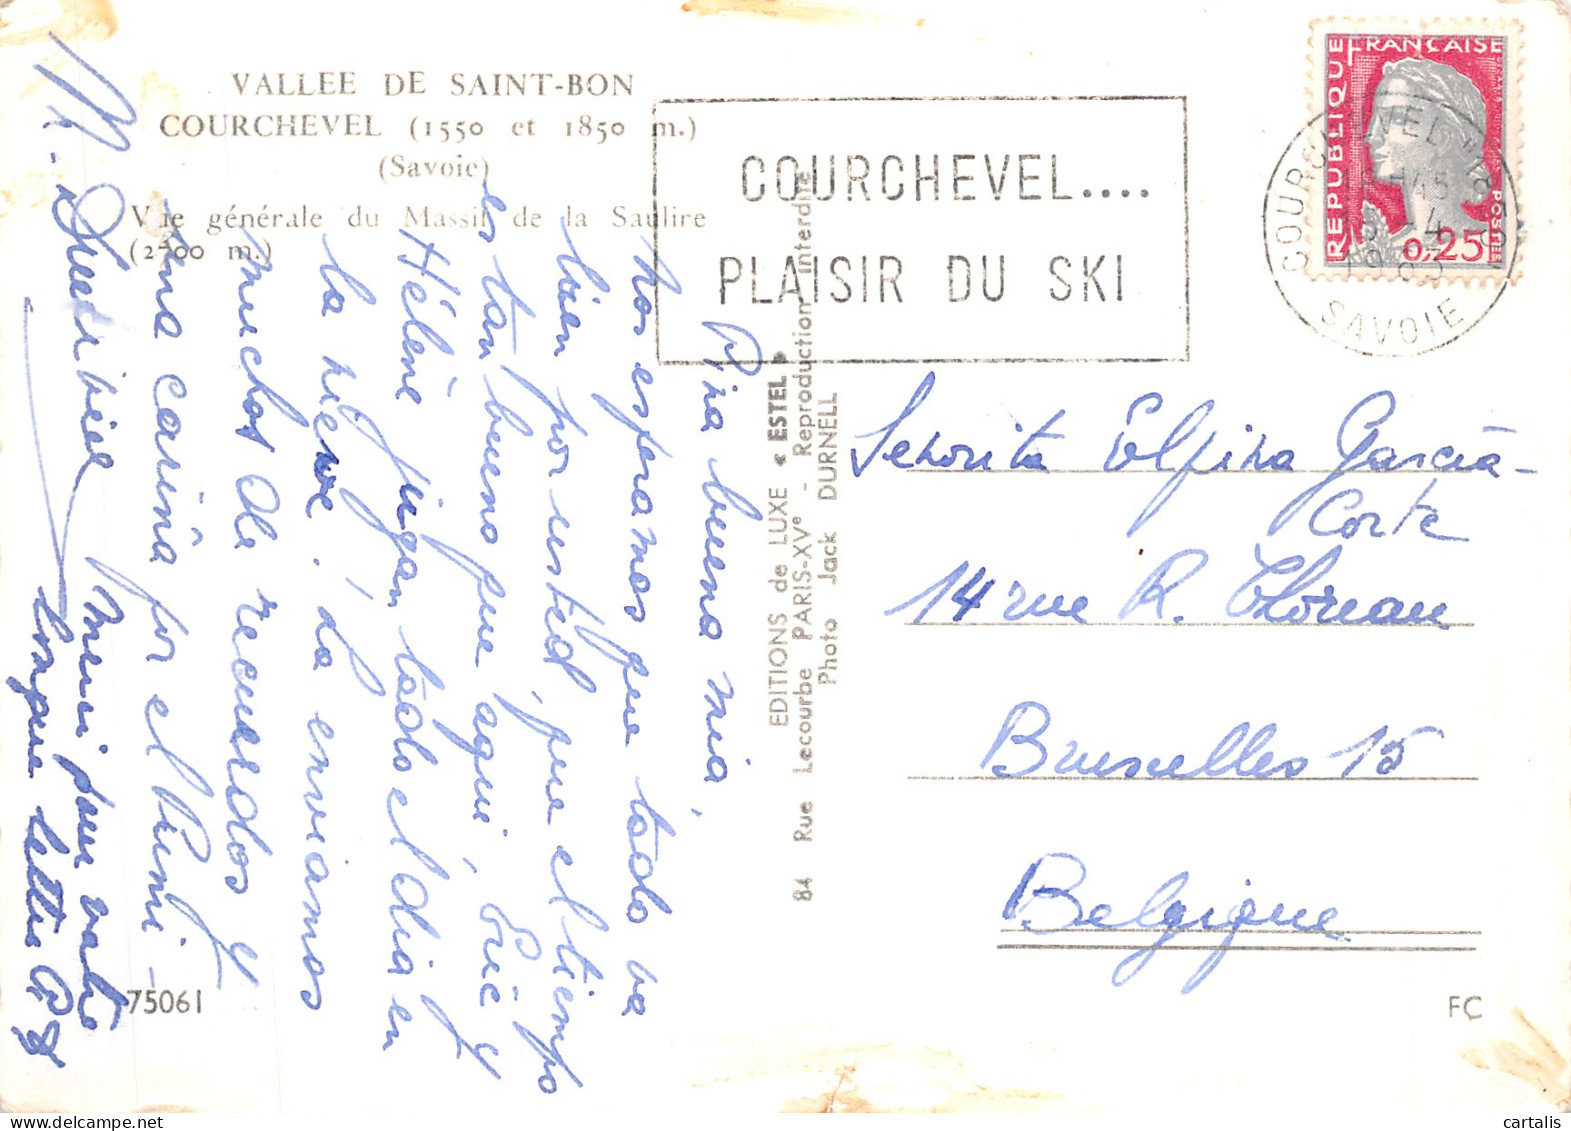 VALLEE DE SAINT-BON
COURCHEVEL (1550 et 1850 m.)
(Savoie)
Vue générale du Massif de la Saulire
(2700 m.)
COURCHEVEL....
PLAISIR DU SKI
REPUBLIQUE FRANÇAISE
POSTES
0,25
SAVOIE
EDITIONS de LUXE « ESTEL »
84 Rue Lecourbe PARIS-XVe - Reproduction interdite
Photo Jack DURNELL
buena mia,
Nos esperamos que todo va
bien por usted, que el tiempo
es tan bueno que aqui, Eric y
Hélène jugan todo el dia en
la nieve. La enviamos
muchos de recuerdos y
una carina por el
Merci pour votre
longue lettre
Senorita Elpina Garcia-
Corte
14 rue R. Thoreau
Bruxelles 15
Belgique
75061
FC
cartalis